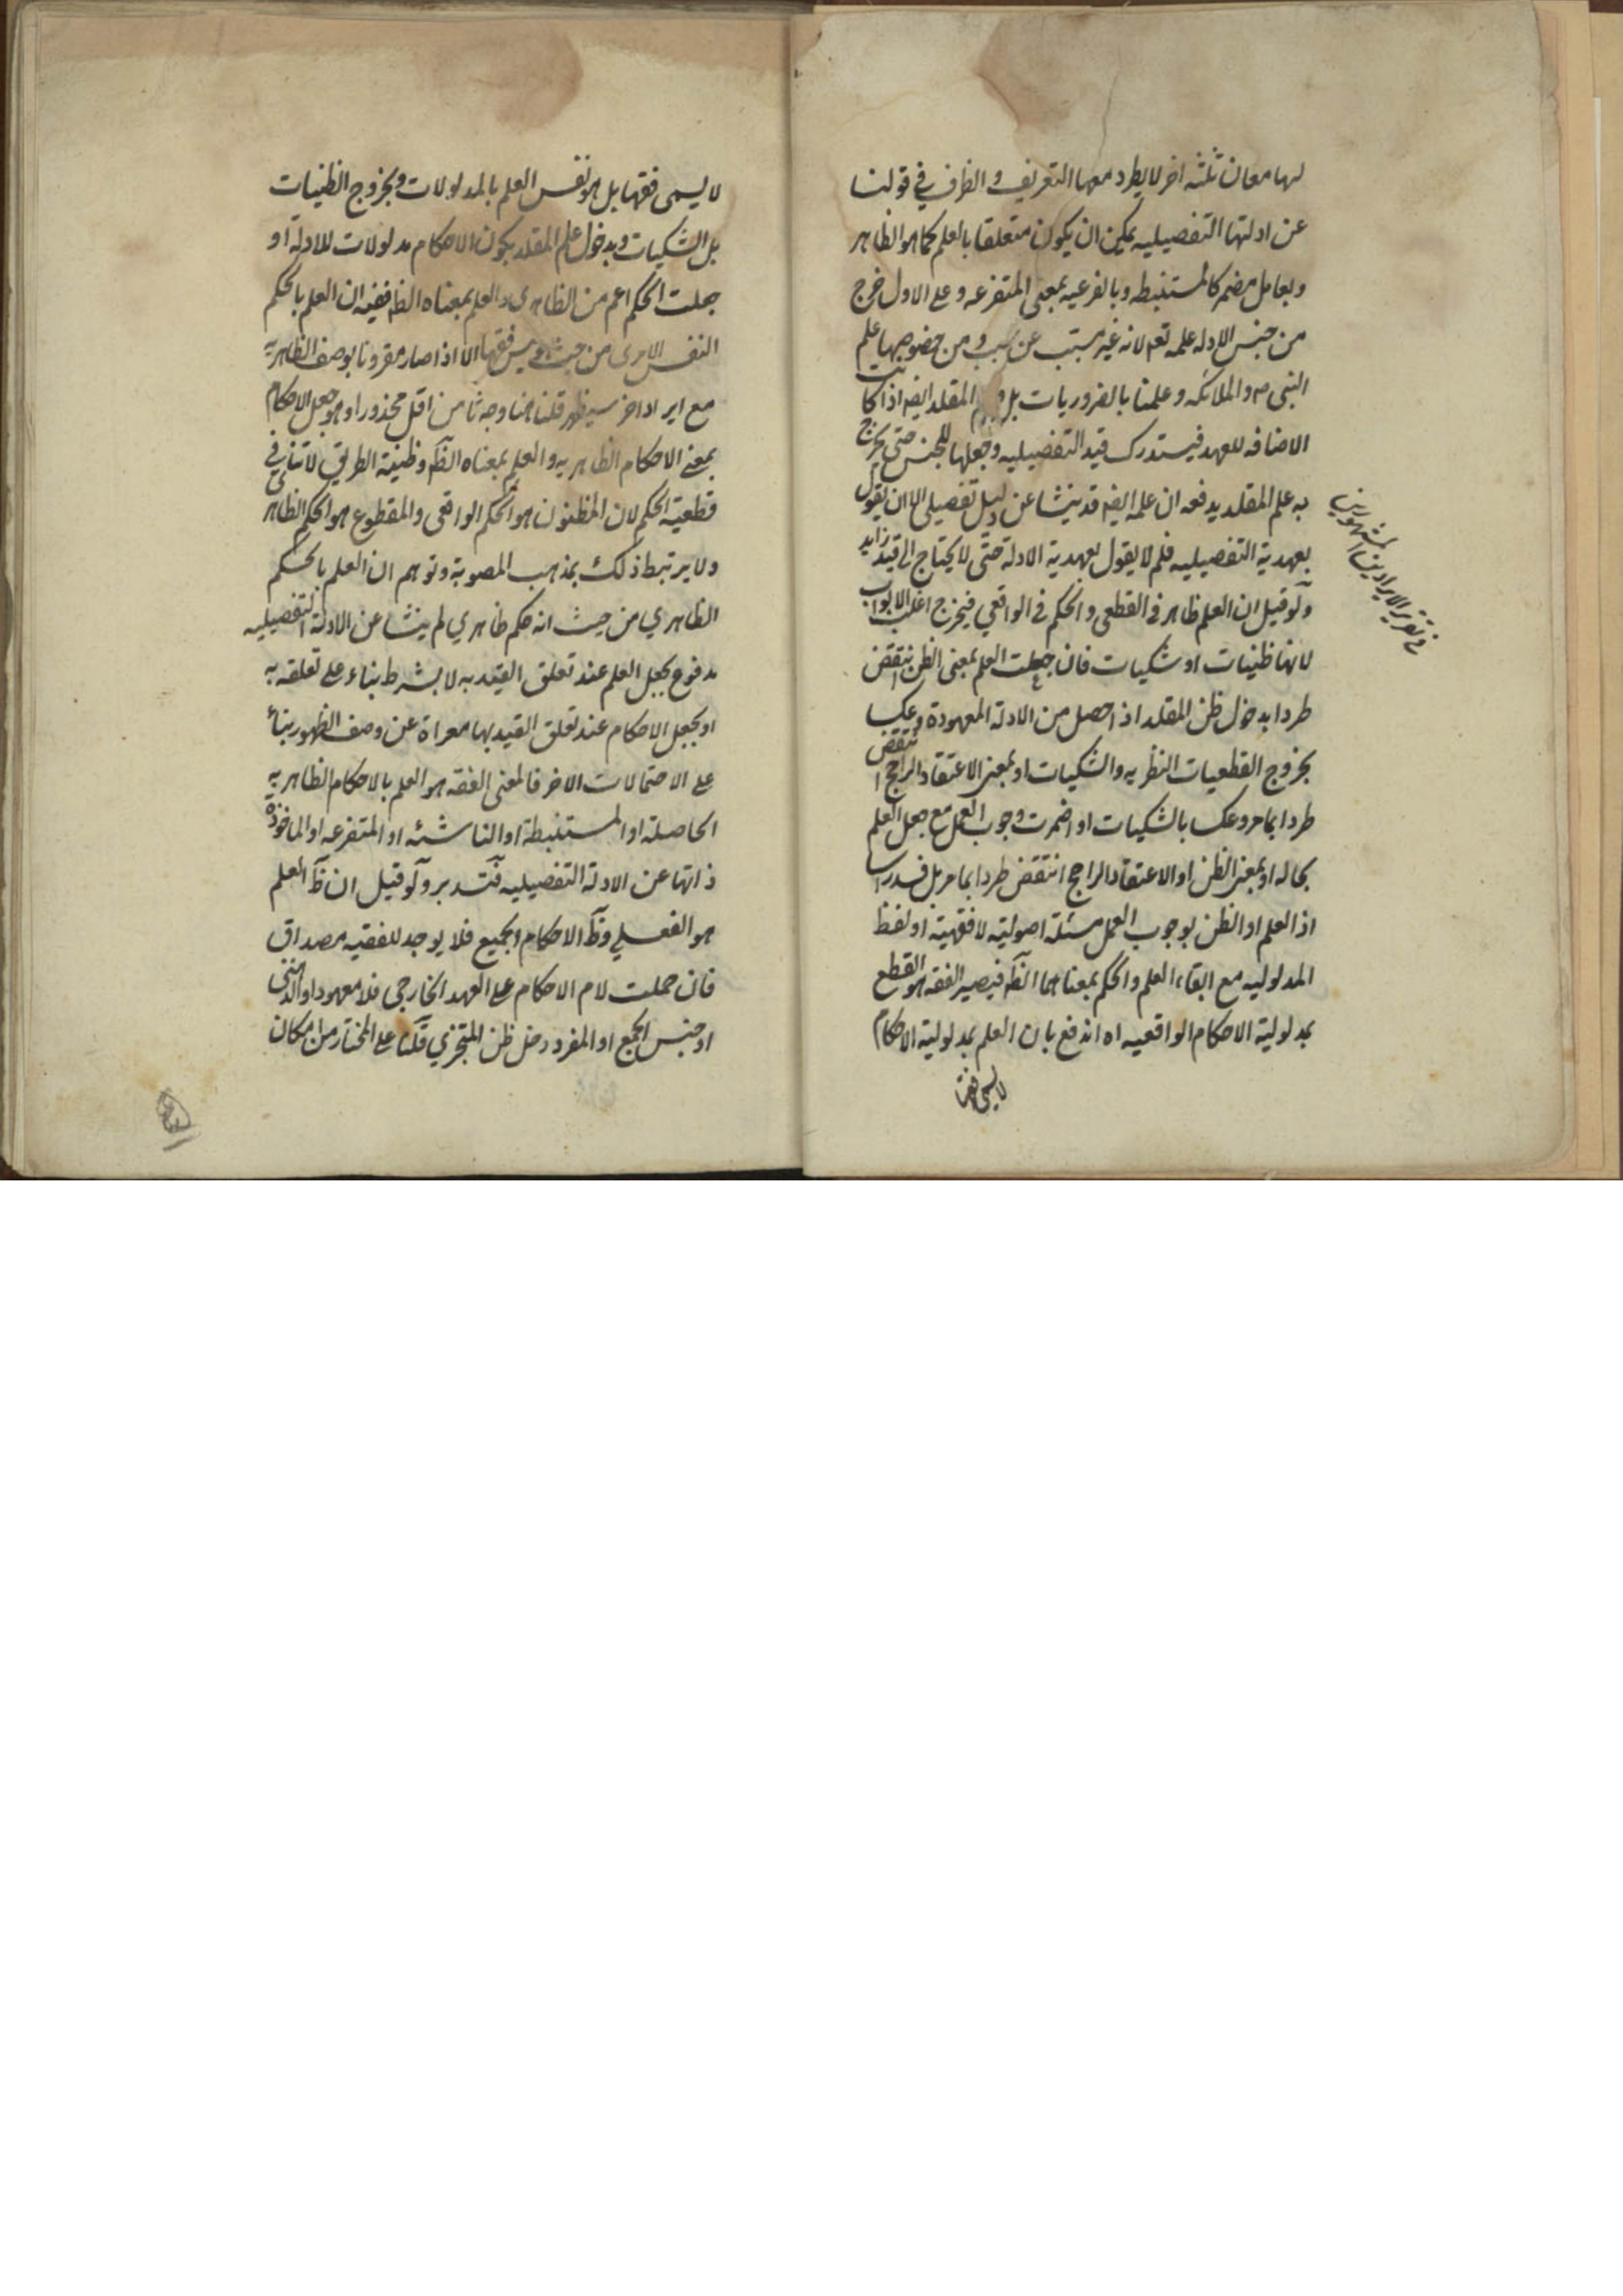 لها معان ثلثه اخر لا يطرد معها التعريف و الظرف في قولنا
عن ادلتها التفصيليه يمكن ان يكون متعلقا بالعلم كما هو الظاهر
و بعامل مضمر كالمستنبطه و بالفرعيه بمعنى المتفرعه و على الاول خرج
من جنس الادله علمه تعه لانه غير مسبب عن سبب و من خصوصها علم
النبي ص و الملائكه و علمنا بالضروريات بل المقلد ايضه اذا كانت
الاضافه للعهد فيستدرك قيد التفصيليه و جعلها للجنس حتى يخرج
به علم المقلد يدفعه ان علمه ايضه قد ينشا عن دليل تفصيلي الا ان يقول
بعهدية التفصيليه فلم لا يقول بعهدية الادلة حتى لا يحتاج الى قيد زايد
في تقرير الايرادين المشهورين
و لو قيل ان العلم ظاهر في القطعي و الحكم في الواقعي فيخرج اغلب الابواب
لانها ظنيات او شكيات فان جعلت العلم بمعنى الظن انتقض
طردا بدخول ظن المقلد اذا حصل من الادلة المعهودة و عكسا
بخروج القطعيات النظريه و الشكيات او بمعنى الاعتقاد الراجح انتقض
طردا بما مر و عكسا بالشكيات او اضمرت وجوب العمل مع جعل العلم
بحاله او بمعنى الظن او الاعتقاد الراجح انتقض طردا بما مر بل فسد راسا
اذ العلم او الظن بوجوب العمل مسئلة اصولية لا فقهية او لفظ
المدلوليه مع ابقاء العلم و الحكم بمعناهما الظه فيصير الفقه هو القطع
بمدلولية الاحكام الواقعيه اه اندفع بان العلم بمدلولية الاحكام
لا يسمى فقها
لا يسمى فقها بل هو نفس العلم بالمدلولات و بخروج الظنيات
بل الشكيات و بدخول علم المقلد بكون الاحكام مدلولات للادلة او
جعلت الحكم اعم من الظاهري و العلم بمعناه الظه ففيه ان العلم بالحكم
النفس الامري من حيث هو ليس فقها الا اذا صار مقرونا بوصف الظاهريه
مع ايراد اخر سيظهر قلنا هنا وجه ثامن اقل محذورا و هو جعل الاحكام
بمعنى الاحكام الظاهريه و العلم بمعناه الظه و ظنية الطريق لا تنافي
قطعية الحكم لان المظنون هو الحكم الواقعي و المقطوع هو الحكم الظاهر
و لا يرتبط ذلك بمذهب المصوبة و توهم ان العلم بالحكم
الظاهري من حيث انه حكم ظاهري لم ينشا عن الادلة التفصيليه
مدفوع بجعل العلم عند تعلق القيد به لا بشرط بناء على تعلقه به
او بجعل الاحكام عند تعلق القيد بها معراة عن وصف الظهور بناء
على الاحتمالات الاخر فالمعنى الفقه هو العلم بالاحكام الظاهريه
الحاصلة او المستنبطة او الناشئه او المتفرعه او الماخوذة
ذاتها عن الادلة التفصيليه فتدبر و لو قيل ان ظ العلم
هو الفعلي و ظ الاحكام الجميع فلا يوجد للفقيه مصداق
فان حملت لام الاحكام على العهد الخارجي فلا معهود او الذهني
او جنس الجمع او المفرد دخل ظن المتجزي قلنا على المختار من امكان